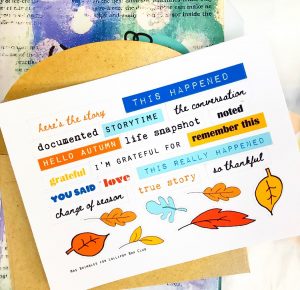 THIS HAPPENED
here's the story
the conversation
documented STORYTIME
noted
HELLO AUTUMN life snapshot
remember this
grateful I'M GRATEFUL FOR
THIS REALLY HAPPENED
YOU SAID love
so thankful
true story
change of season